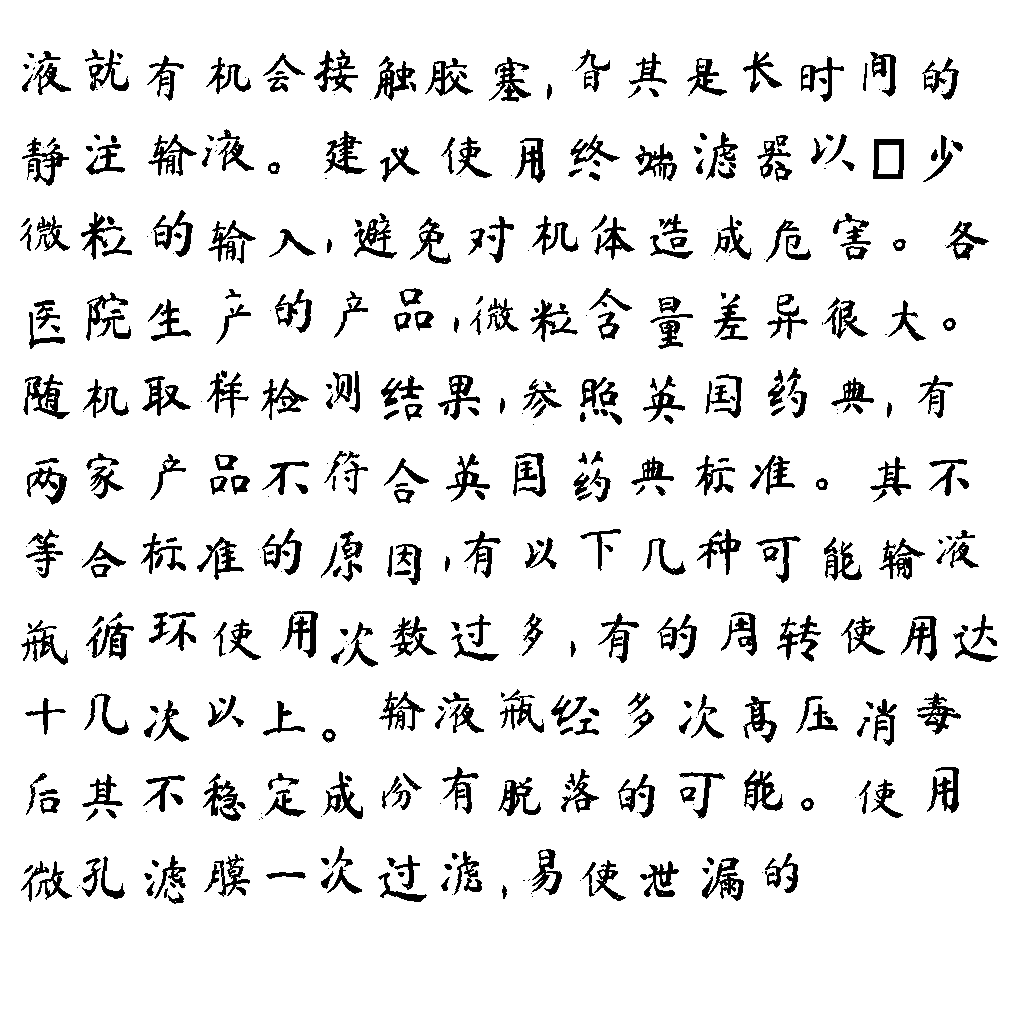 液就有机会接触胶塞,旮其是长时间的
静注输液。建议使用终端滤器以□少
微粒的输入,避免对机体造成危害。各
医院生产的产品,微粒含量差异很大。
随机取样检测结果,参照英国药典,有
两家产品不符合英国药典标准。其不
等合标准的原因,有以下几种可能输液
瓶循环使用次数过多,有的周转使用达
十几次以上。输液瓶经多次高压消毒
后其不稳定成份有脱落的可能。使用
微孔滤膜一次过滤,易使泄漏的